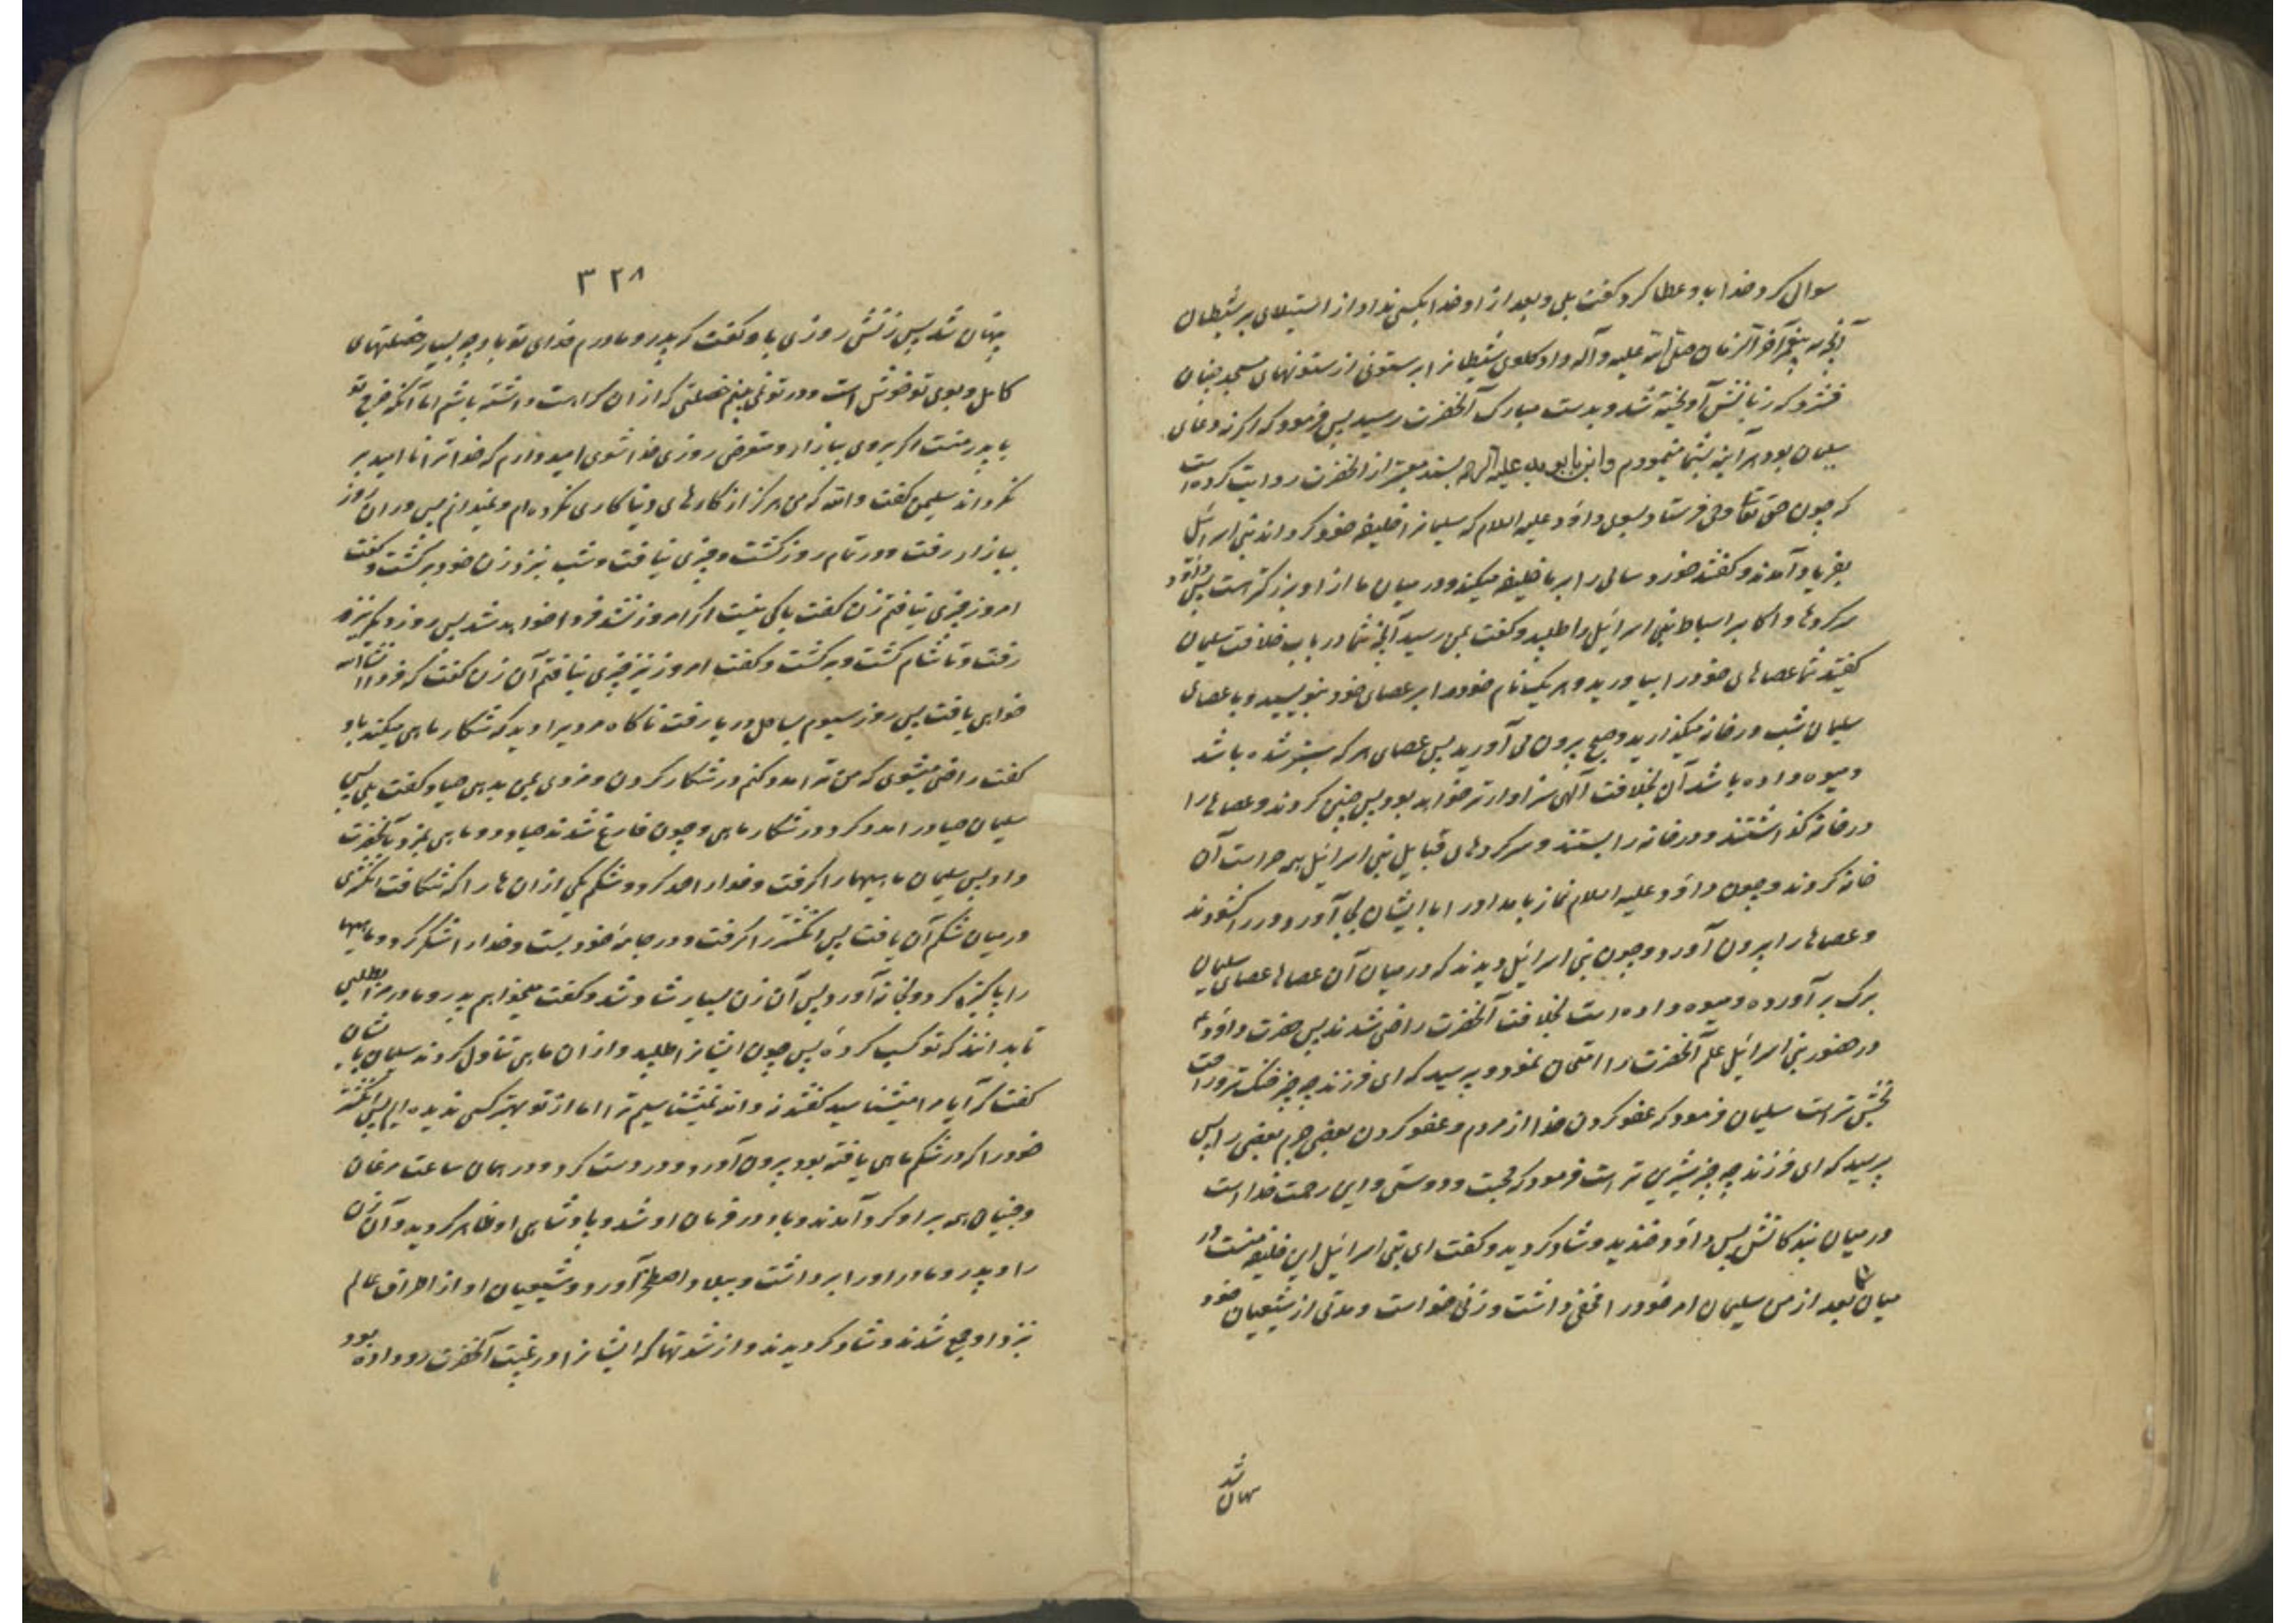 سوال کرد خدا باو عطا کرد گفت بلی و بعد از او خدا بکسی نداد از استیلای بر شیطان
آنچه به پیغمبر آخر الزمان صلی الله علیه وآله داد گلوی شیطانرا بر ستونی از ستونهای مسجد چنان
فشرد که زبانش آویخته شد و بدست مبارک آنحضرت رسید پس فرمود که اگر نه دعای
سلیمان بود هر آینه بشما مینمودم و ابن بابویه علیه الرحمه بسند معتبر از آنحضرت روایت کرده است
که چون حق تعالی وحی فرستاد بسوی داود علیه السلام که سلیمانرا خلیفه خود گرداند بنی اسرائیل
بفریاد آمدند و گفتند خورد سالی را بر ما خلیفه میکند و در میان ما از او بزرگتر است پس داود
سرکردها و اکابر اسباط بنی اسرائیل را طلبید و گفت بمن رسید آنچه شما در باب خلافت سلیمان
گفتید شما عصاهای خود را بیاورید و هر یک نام خود را بر عصای خود بنویسید و با عصای
سلیمان شب در خانه میگذارید و صبح بیرون می آورید پس عصای هر که سبز شده باشد
و میوه داده باشد آن بخلافت الهی سزاوارتر خواهد بود پس چنین کردند و عصاها را
در خانه گذاشتند و در خانه را بستند و سرکردهای قبایل بنی اسرائیل همه حراست آن
خانه کردند و چون داود علیه السلام نماز بامداد را با ایشان بجا آورد و در را گشودند
و عصاها را بیرون آورد و چون بنی اسرائیل دیدند که در میان آن عصاها عصای سلیمان
برگ بر آورده و میوه داده است بخلافت آنحضرت راضی شدند پس حضرت داود ع
در حضور بنی اسرائیل علم آنحضرت را امتحان نمود و پرسید که ای فرزند چه چیز خنک تر و راحت
بخش تر است سلیمان فرمود که عفو کردن خدا از مردم و عفو کردن بعضی جرم بعضی را پس
پرسید که ای فرزند چه چیز شیرین تر است فرمود که محبت و دوستی و این رحمت خدا است
در میان بندگانش پس داود خندید و شاد گردید و گفت ای بنی اسرائیل این خلیفه منست در
میان شما بعد از من سلیمان امر خود را مخفی داشت و زنی خواست و مدتی از شیعیان خود
پنهان شد
۳۲۸
پنهان شد پس زنش روزی باو گفت که پدر و مادرم فدای تو باد چه بسیار خصلتهای
کامل و بوی تو خوش است و در تو نمی بینم خصلتی که از آن کراهت داشته باشم اما آنکه خرج تو
با پدر منست اگر بروی ببازار و متعرض روزی خدا شوی امیدوارم که خدا ترا نا امید بر
نگرداند سلیمن گفت والله که من هرگز از کارهای دنیا کاری نکرده ام و نمیدانم پس در آن روز
ببازار رفت و در تمام روز گشت و چیزی نیافت و شب بنزد زن خود برگشت و گفت
امروز چیزی نیافتم زن گفت باکی نیست اگر امروز نشد فردا خواهد شد پس روز دیگر نیز
رفت و تا شام گشت و برگشت و گفت امروز نیز چیزی نیافتم آن زن گفت که فردا انشاالله
خواهی یافت پس روز سیوم بساحل دریا رفت ناگاه مردیرا دید که شکار ماهی میکند باو
گفت راضی میشوی که من ترا مدد کنم در شکار کردن و مزدی بمن بدهی صیاد گفت بلی پس
سلیمان صیاد را مدد کرد در شکار ماهی و چون فارغ شدند صیاد دو ماهی بمزد بآنحضرت
داد پس سلیمان ماهیها را گرفت و خدا را حمد کرد و شکم یکی از آن ها را که شکافت انگشتری
در میان شکم آن یافت پس انگشتر را گرفت و در جامه خود بست و خدا را شکر کرد و ماهیها
را پاکیزه کرد و بخانه آورد پس آن زن بسیار شاد شد و گفت میخواهم پدر و مادر مرا بطلبی
تا بدانند که تو کسب کرده پس چون ایشانرا طلبید و از آن ماهی تناول کردند سلیمان بایشان
گفت که آیا مرا میشناسید گفتند نه والله نمیشناسیم ترا اما از تو بهتر کسی ندیده ایم پس انگشتر
خود را که در شکم ماهی یافته بود بیرون آورد و در دست کرد و در همان ساعت مرغان
و جنیان همه بر او گرد آمدند و باد در فرمان او شد و پادشاهی او ظاهر گردید و آن زن
را و پدر و مادر او را برداشت و ببلاد اصطخر آورد و شیعیان او از اطراف عالم
نزد او جمع شدند و شاد گردیدند و از شدتها که ایشانرا در غیبت آنحضرت رو داده بود